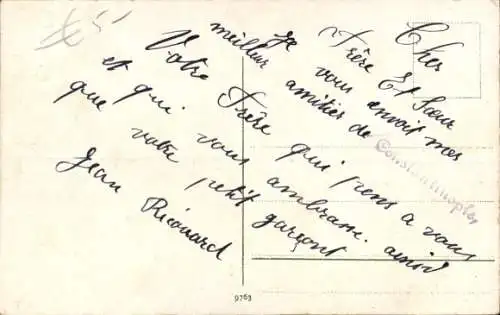 Cher
Frère Et Sœur
Je vous envoit mes
meilleur amitier de Constantinople
Votre Frère qui pens a vous
et qui vous ambrasse. ainsi
que votre petit garçont
Jean Ricouard
9763